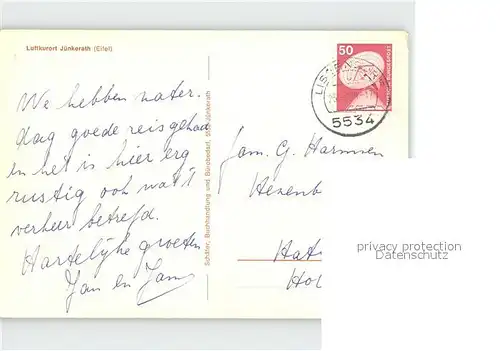 Luftkurort Jünkerath (Eifel)
We hebben water.
dag goede reis gehad
en het is hier erg
rustig ook wat 't
verkeer betrefd.
Hartelijke groeten
Jan en
Schöner, Buchhandlung und Bürobedarf, 5532 Jünkerath
50
DEUTSCHE BUNDESPOST
5534
fam. G. Harmsen
Hexenb
Hat
Hol
privacy protection
Datenschutz